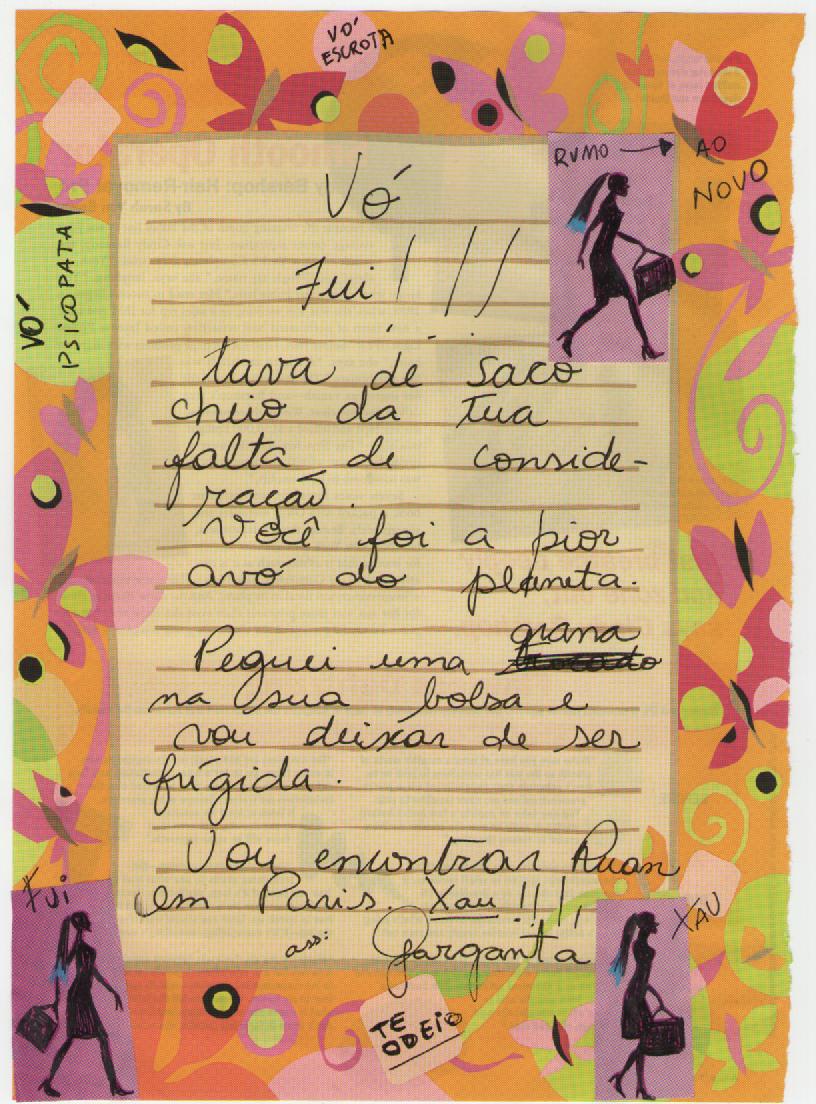 VÓ ESCROTA
RUMO → AO NOVO
VÓ PSICOPATA
Vó
Fui!!!
tava de saco
cheio da tua
falta de conside-
ração.
Você foi a pior
avó do planeta.
Peguei uma grana
na sua bolsa e
vou deixar de ser
frígida.
Vou encontrar Ruan
em Paris. Xau!!!,
ass: Garganta
FUi
XAU
TE
ODEIO